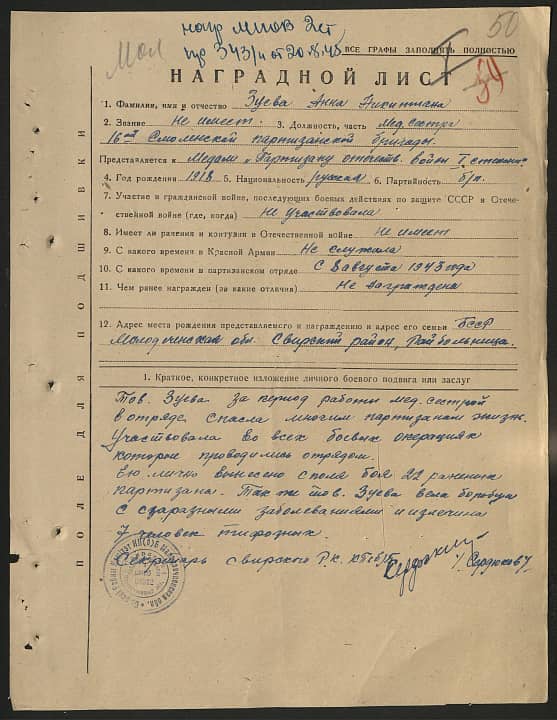 50
Мол
нагр МПОВ 2 ст
пр 343/н от 20.8.48
ВСЕ ГРАФЫ ЗАПОЛНЯТЬ ПОЛНОСТЬЮ
НАГРАДНОЙ ЛИСТ
1. Фамилия, имя и отчество Зуева Анна Никитична
2. Звание Не имеет. 3. Должность, часть Мед. сестра
16ой Смоленской партизанской бригады.
Представляется к Медали "Партизану отечеств. войны I степени"
4. Год рождения 1918 5. Национальность русская 6. Партийность б/п.
7. Участие в гражданской войне, последующих боевых действиях по защите СССР и Отече-
ственной войне (где, когда) Не участвовала
8. Имеет ли ранения и контузии в Отечественной войне Не имеет
9. С какого времени в Красной Армии Не служила
10. С какого времени в партизанском отряде С 8 августа 1943 года
11. Чем ранее награжден (за какие отличия) Не награждена
12. Адрес места рождения представляемого к награждению и адрес его семьи БССР
Молодеченская обл. Свирский район, Рай больница.
1. Краткое, конкретное изложение личного боевого подвига или заслуг
Тов. Зуева за период работы мед. сестрой
в отряде спасла многим партизанам жизнь.
Участвовала во всех боевых операциях
которые проводились отрядом.
Ею лично вынесено с поля боя 22 раненых
партизана. Так же тов. Зуева вела борьбу
с заразными заболеваниями и излечила
7 человек тифозных.
Секретарь свирского Р.К. КП(б)Б /Сердюков/
ПОЛЕ ДЛЯ ПОДШИВКИ